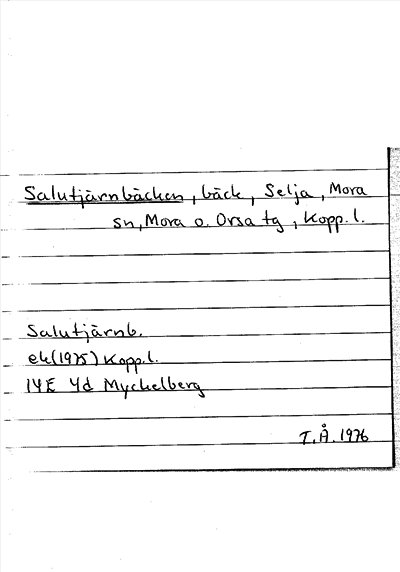 Salutjärnbäcken, bäck, Selja, Mora
sn, Mora o. Orsa tg, Kopp. l.
Salutjärnb.
ek (1975) Kopp. l.
14E 4d Myckelberg
T.Å. 1976